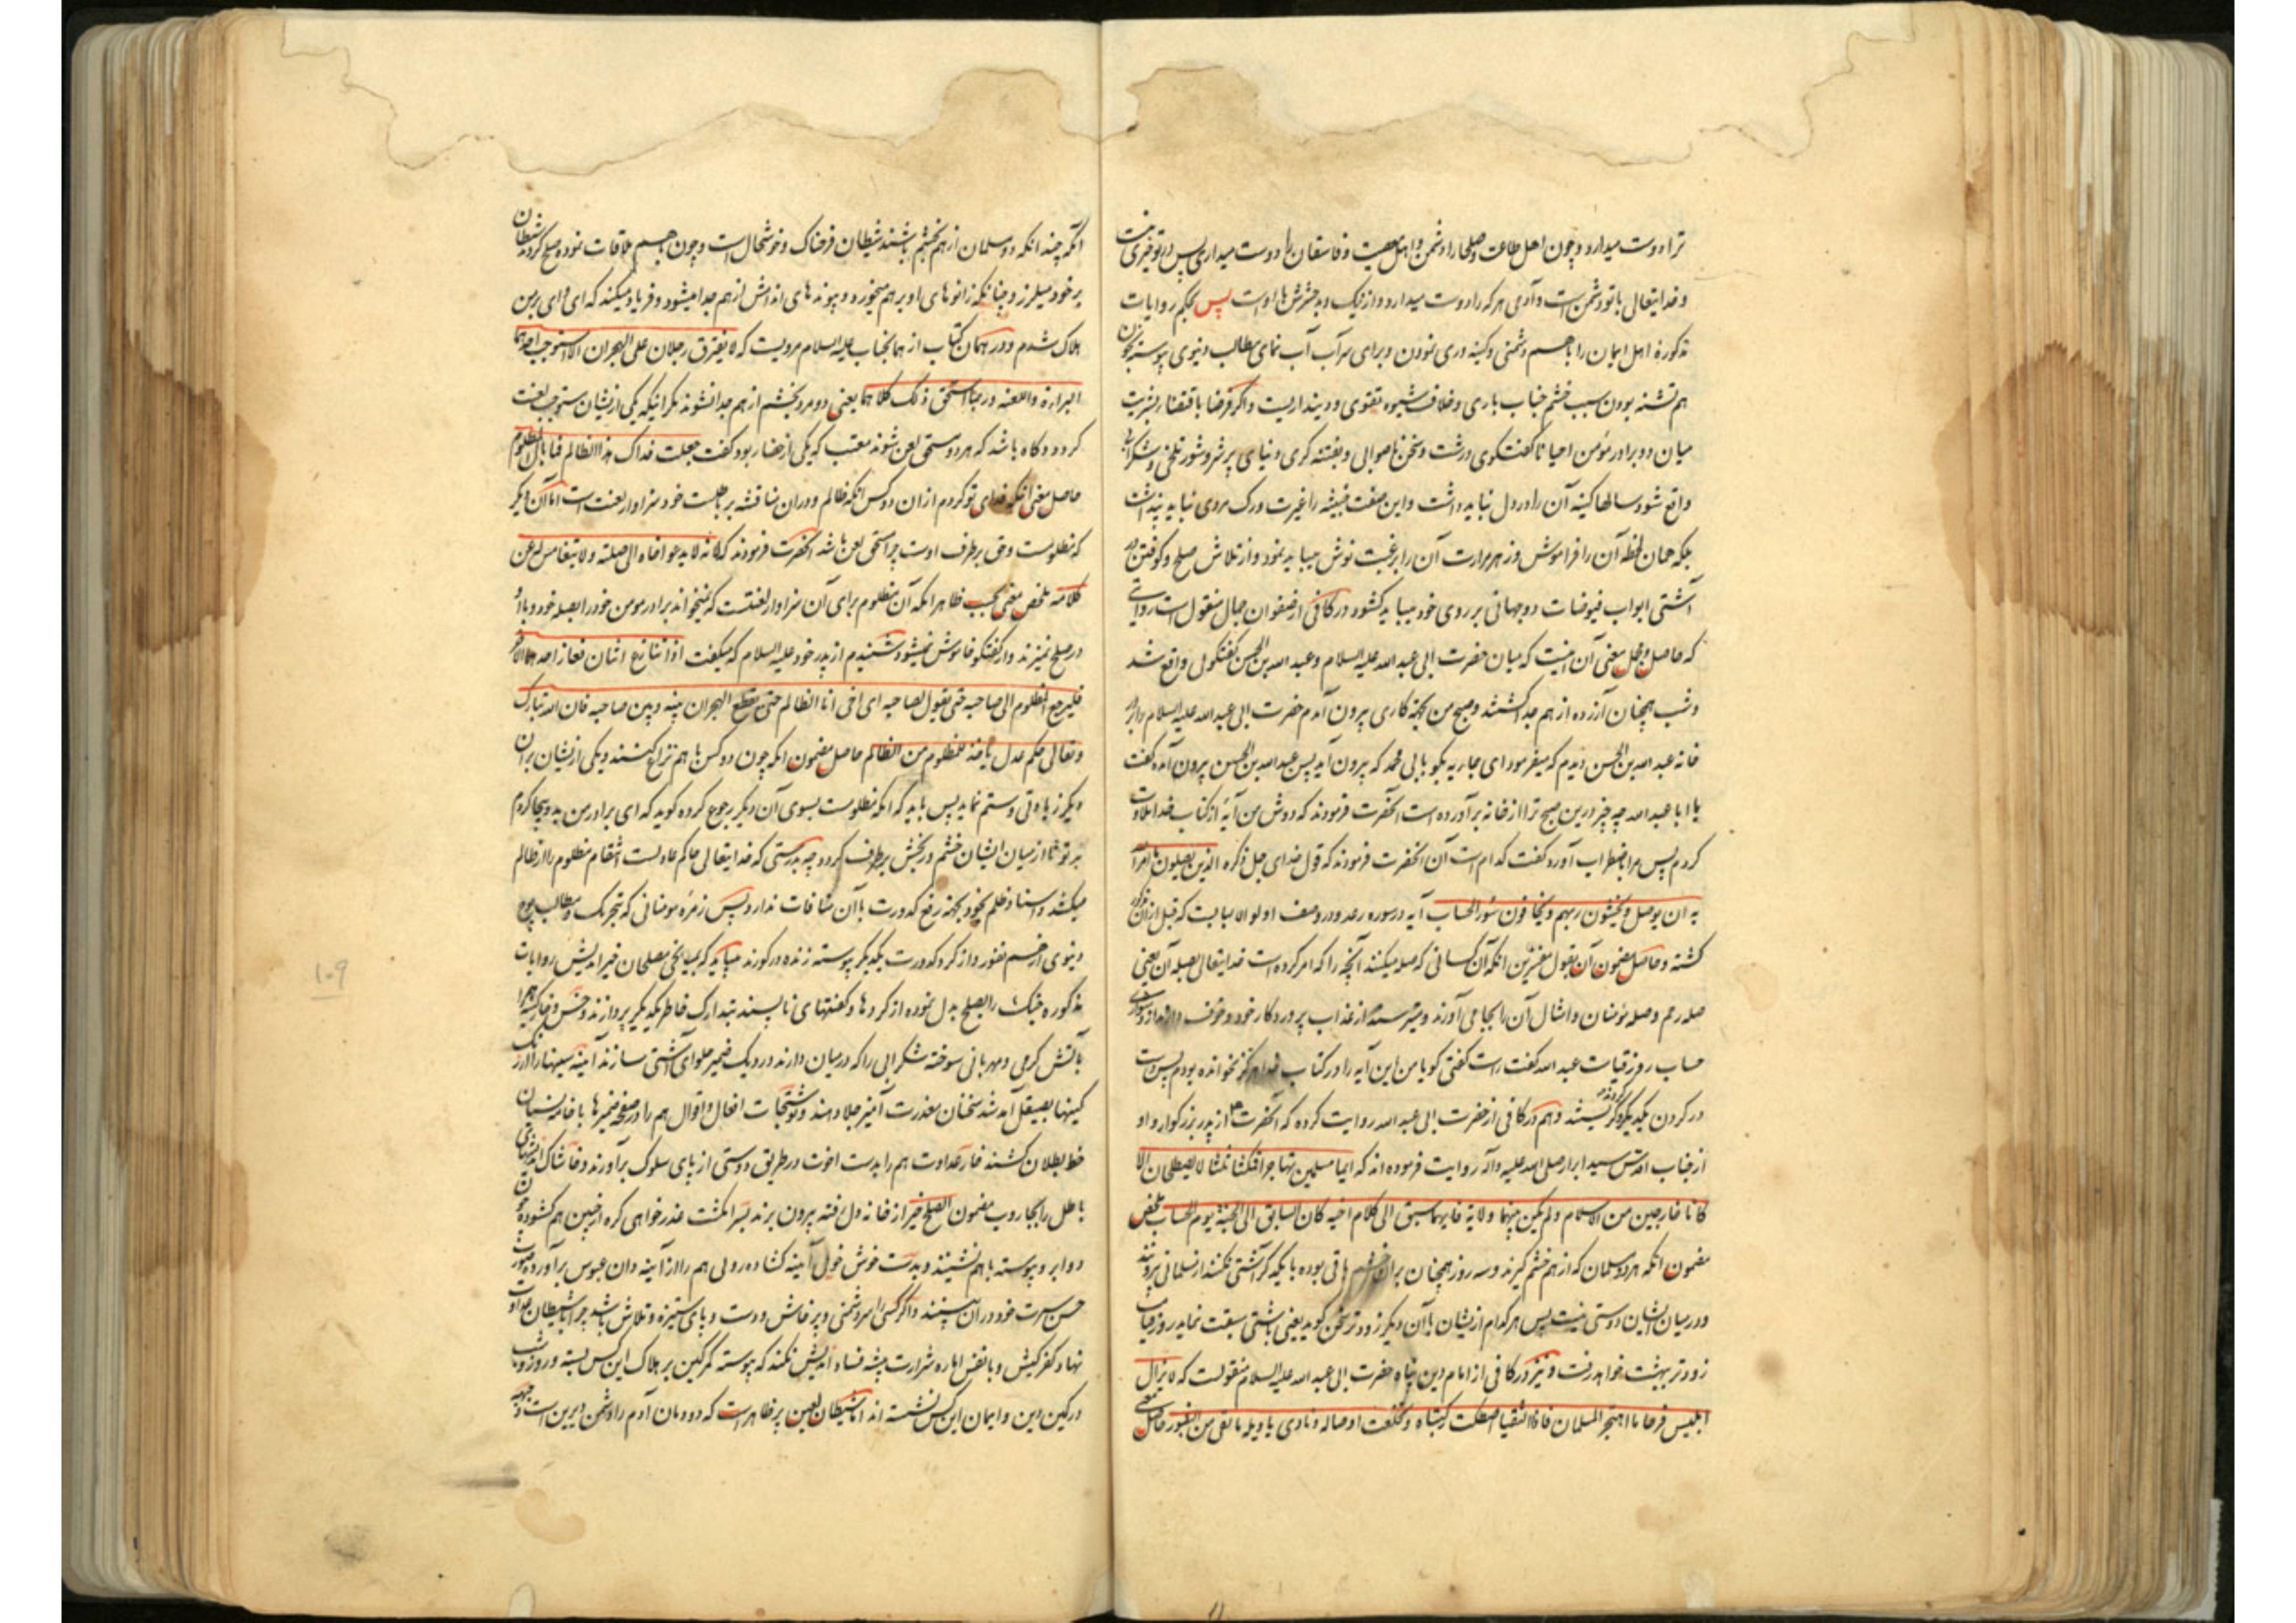 ترا دوست میدارد و چون اهل طاعت و صلحا را دشمن و اهل معصیت و فاسقان را دوست میداری پس در تو خیری نیست
و خدایتعالی با تو دشمن است و آدمی هر که را دوست میدارد و از نیک و بد حشرش با اوست پس بحکم روایات
مذکوره اهل ایمان را با هم دشمنی و کینه وری نمودن و برای سرآب آب نمای مطالب دنیوی پیوسته بخون
هم تشنه بودن سبب خشم جناب باری و خلاف شیوه تقوی و دینداریست و اگر فرضا باقتضاء بشریت
میان دو برادر مؤمن احیانا گفتگوی درشت و سخن ناصوابی و بفتنه گری دنیای پر شر و شور تلخی و شکرآبی
واقع شود سالها کینه آن را در دل نباید داشت و این صفت خبیثه را غیرت و رک مردی نباید پنداشت
بلکه همان لحظه آن را فراموش و زهر مرارت آن را برغبت نوش میباید نمود و از تلاش صلح و کوفتن در
آشتی ابواب فیوضات دوجهانی بر روی خود میباید کشود در کافی از صفوان جمال منقول است روایتی
که حاصل و مجمل معنی آن اینست که میان حضرت ابی عبد الله علیه السلام و عبد الله بن الحسن گفتگوئی واقع شد
و شب همچنان آزرده از هم جدا گشتند و صبح من بجهة کاری بیرون آمدم حضرت ابی عبد الله علیه السلام را بر در
خانه عبد الله بن الحسن دیدم که میفرمود ای جاریه بگو بابی محمد که بیرون آید پس عبد الله بن الحسن بیرون آمده گفت
یا ابا عبد الله چه چیز درین صبح ترا از خانه برآورده است آنحضرت فرمودند که دوش من آیهٔ از کتاب خدا تلاوت
کردم پس مرا باضطراب آورد گفت کدام است آن آنحضرت فرمودند که قول خدای جل ذکره الذین یصلون ما امر الله
به ان یوصل و یخشون ربهم و یخافون سوء الحساب آیه در سوره رعد و در وصف اولو الالبابست که قبل از آن مذکور
گشته و حاصل مضمون آن بقول مفسرین آنکه آن کسانی که صله میکنند آنچه را که امر کرده است خدایتعالی بصله آن یعنی
صله رحم و صله مؤمنان و امثال آن را بجا می آورند و میترسند از عذاب پروردکار خود و خوف دارند از بدی
حساب روز قیامت عبد الله گفت راست گفتی کویا من این آیه را در کتاب خدا هرگز نخوانده بودم پس دست
در گردن یکدیگر کردند و گریستند و هم در کافی از حضرت ابی عبد الله روایت کرده که آنحضرت از پدر بزرکوار و او
از جناب اقدس سید ابرار صلی الله علیه و آله روایت فرموده اند که ایما مسلمین تهاجرا فمکثا ثلثا لا یصطلحان الا
کانا خارجین من الاسلام و لم یکن بینهما ولایة فایهما سبق الی کلام اخیه کان السابق الی الجنة یوم الحساب ملخص
مضمون آنکه هر دو مسلمان که از هم خشم گیرند و سه روز همچنان بر آن خشم باقی بوده با یکدیگر آشتی نکنند از مسلمانی بیرونند
و در میان ایشان دوستی نیست پس هر کدام از یشان با آن دیگر زودتر سخن کوید یعنی بآشتی سبقت نماید روز قیامت
زودتر ببهشت خواهد رفت و نیز در کافی از امام دین پناه حضرت ابی عبد الله علیه السلام منقولست که لا یزال
ابلیس فرحا ما اهتجر المسلمان فاذا التقیا اصطکت رکبتاه و تخلعت اوصاله و نادی یا ویله ما لقی من الثبور حاصل معنی
آنکه چند آنکه دو مسلمان از هم بخشم باشند شیطان فرحناک و خوشحال است و چون با هم ملاقات نموده صلح کردند شیطان
بر خود میلرزد چنانکه زانوهای او بر هم میخورد و پیوندهای اندامش از هم جدا میشود و فریاد میکند که ای وای بر من
هلاک شدم و در همان کتاب از همانجناب علیه السلام مرویست که لا یفترق رجلان علی الهجران الا استوجب احدهما
البراءة و اللعنة و ربما استحق ذلک کلاهما یعنی دو مرد بخشم از هم جدا نشوند مگر آنیکه یکی از یشان مستوجب لعنت
گردد و گاه باشد که هر دو مستحق لعن شوند معتب که یکی از حضار بود گفت جعلت فداک هذا الظالم فما بال المظلوم
حاصل معنی آنکه فدای تو گردم از آن دو کس آنکه ظالم و در آن مناقشه بر باطلست خود سزاوار لعنت است اما آن دیگر
که مظلومست و حق بر طرف اوست چرا مستحق لعن باشد آنحضرت فرمودند که لانه لا یدعو اخاه الی صلته و لا یتغامس له عن
کلامه ملخص معنی بحسب ظاهر آنکه آن مظلوم برای آن سزاوار لعنتست که نمیخواند برادر مومن خود را بصله خود و با او
در صلح نمیزند و از گفتگو خاموش نمیشود شنیدم از پدر خود علیه السلام که میگفت اذا تنازع اثنان فعاز احدهما الاخر
فلیرجع المظلوم الی صاحبه حتی یقول لصاحبه ای اخی انا الظالم حتی یقطع الهجران بینه و بین صاحبه فان الله تبارک
و تعالی حکم عدل یاخذ للمظلوم من الظالم حاصل مضمون آنکه چون دو کس با هم نزاع کنند و یکی از یشان بر آن
دیگر زیادتی و ستم نماید پس باید که آنکه مظلومست بسوی آن دیگر رجوع کرده کوید که ای برادر من بد و بیجا کردم
بر تو تا از میان ایشان خشم و رنجش برطرف گردد چه بدرستی که خدایتعالی حاکم عادلست انتقام مظلوم را از ظالم
میکشد و اسناد ظلم بخود بجهة رفع کدورت با آن منافات ندارد پس زمره مومنانی که بتحریک مطالب پوچ
دنیوی از هم نفور و از گرد کدورت یکدیگر پیوسته زنده در کورند میباید که بمیانجی مصلحان خیراندیش روایات
مذکوره جنک را بصلح بدل نموده از کردها و گفتهای ناپسند بتدارک خاطر یکدیگر پردازند و خس و خار کینه را
بآتش گرمی و مهربانی سوخته شکرآبی را که در میان دارند در دیک ضمیر حلوای آشتی سازند آینه سینها را از زنک
کینها بصیقل آمد شد سخنان معذرت آمیز جلا دهند و نوشتجات افعال و اقوال هم را در صفحه ضمیرها بخامه نسیان
خط بطلان کشند خار عداوت هم را بدست اخوت در طریق دوستی از پای سلوک برآورند و خاشاک اندیشهای
باطل را بجاروب مضمون الصلح خیر از خانه دل رفته بیرون برند بسر انگشت عذر خواهی گره از جبین هم کشوده چون
دو ابرو پیوسته با هم نشینند و بدست خوش خوئی آینه کشاده روئی هم را از آینه دان عبوس برآورده صورت
حسن سیرت خود در آن بینند و اگر کسی را سر دشمنی و پرخاش و دست و پای ستیزه و تلاش باشد چرا با شیطان عداوت
نهاد کفر کیش و با نفس اماره شرارت پیشه فساد اندیش نکند که پیوسته کمر کین بر هلاک این کس بسته و روز و شب
در کمین دین و ایمان این کس نشسته اند اما شیطان لعین پر ظاهر است که دودمان آدم را دشمن دیرین است و بجهة
۱۰۹